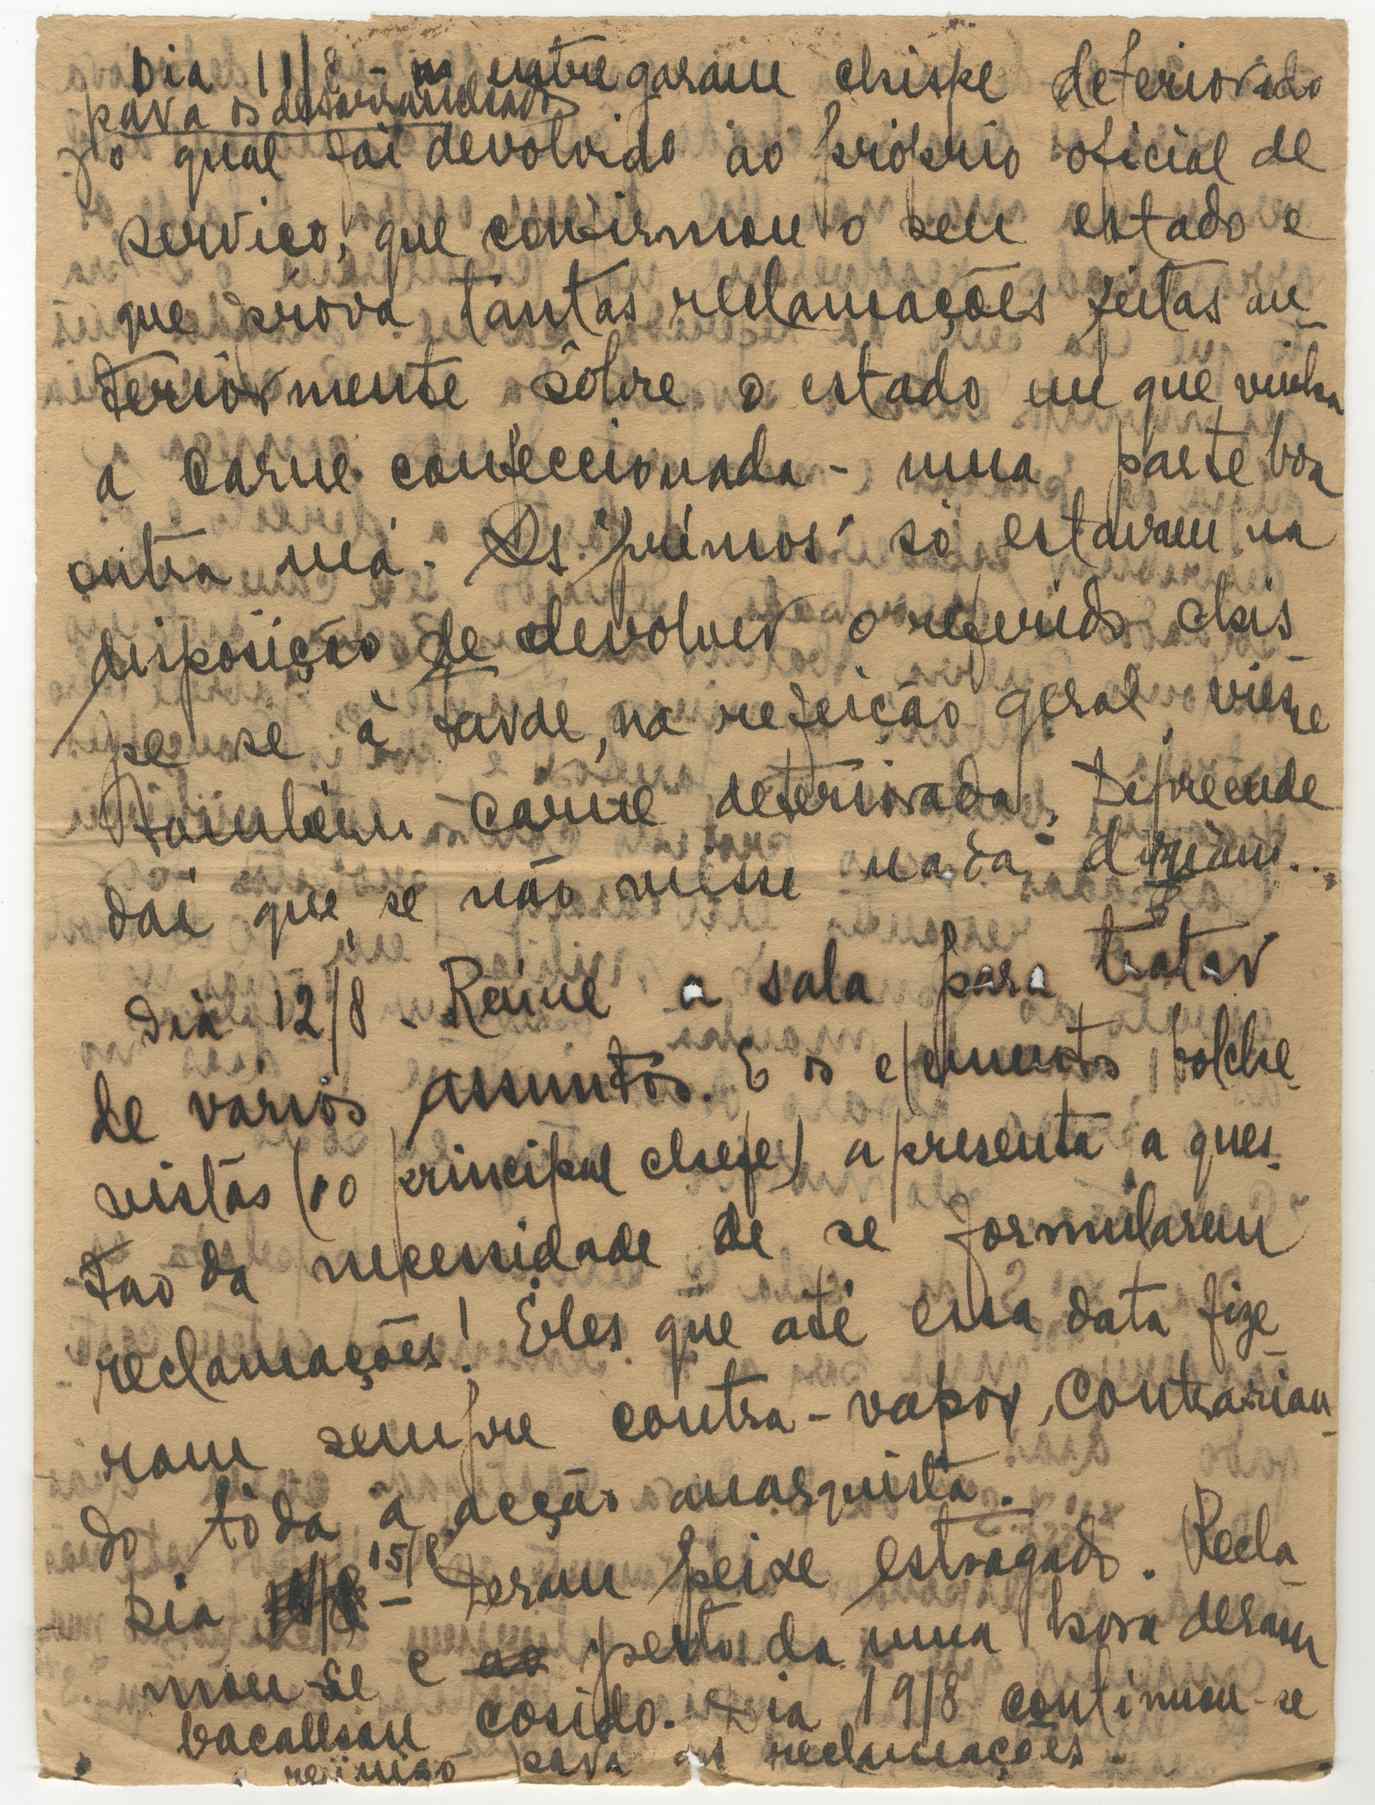 Dia 11/8 - entregaram chispe deteriorado
para os desarranchados
o qual foi devolvido ao próprio oficial de
serviço, que confirmou o seu estado e
que prova tantas reclamações feitas an-
teriormente sôbre o estado em que vinha
a carne confeccionada - uma parte boa
outra má. Os "primos" só estavam na
disposição de devolver o referido chis-
pe se à tarde, na refeição geral, viesse
tambêm carne deteriorada. Depreende
daí que se não viesse nada diziam...
Dia 12/8 - Reúne a sala para tratar
de vários assuntos. E os elementos bolche-
vistas (o principal chefe) apresenta a ques-
tão da necessidade de se formularem
reclamações! Êles que até essa data fize-
ram sempre contra-vapor, contrarian-
do tôda a acção anarquista.
Dia 15/8 - Deram peixe estragado. Recla-
mou-se e perto da uma hora deram
bacalhau cosido. Dia 19/8 continuou-se
reünião para as reclamações -